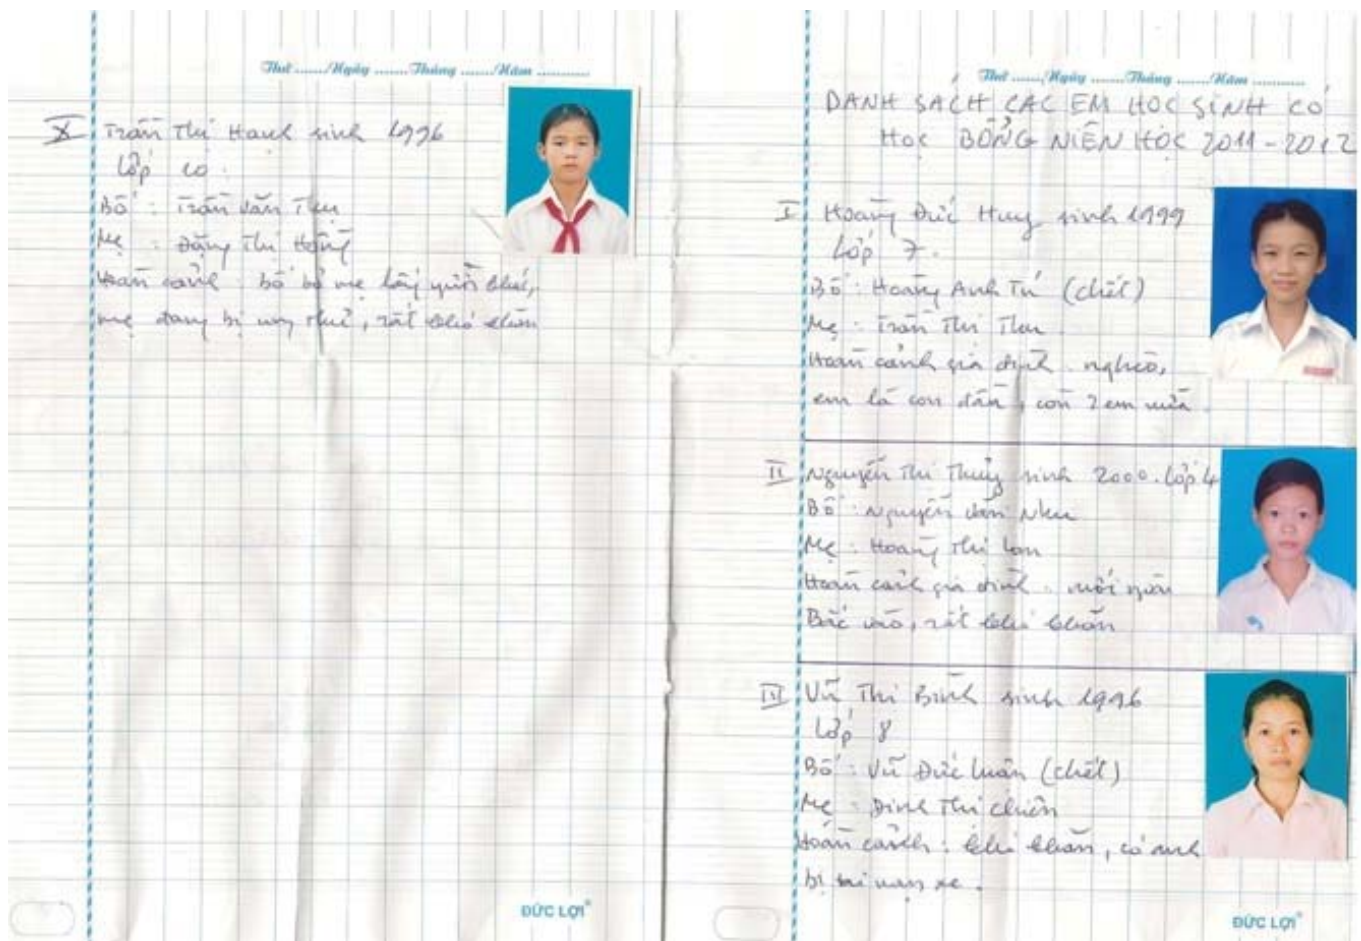 Thứ ......./Ngày .......Tháng ......./Năm ...........
X Trần Thị Hạnh sinh 1996
Lớp 10.
Bố : Trần Văn Thu
Mẹ : Đặng Thị Hồng
Hoàn cảnh : bố bỏ mẹ lấy người khác,
mẹ đang bị ung thư, rất khó khăn
ĐỨC LỢI
Thứ ......./Ngày .......Tháng ......./Năm ...........
DANH SÁCH CÁC EM HỌC SINH CÓ
HỌC BỔNG NIÊN HỌC 2011-2012
I Hoàng Đức Huy sinh 1999
Lớp 7.
Bố : Hoàng Anh Tú (chết)
Mẹ : Trần Thị Thu
Hoàn cảnh gia đình nghèo,
em là con đầu, còn 2 em nữa.
II Nguyễn Thị Thủy sinh 2000. Lớp 4
Bố : Nguyễn Văn Như
Mẹ : Hoàng Thị Lan
Hoàn cảnh gia đình : mới ngoài
Bắc vào, rất khó khăn
III Vũ Thị Bình sinh 1996
Lớp 8
Bố : Vũ Đức Luân (chết)
Mẹ : Đinh Thị Chiên
Hoàn cảnh : khó khăn, có anh
bị tai nạn xe.
ĐỨC LỢI